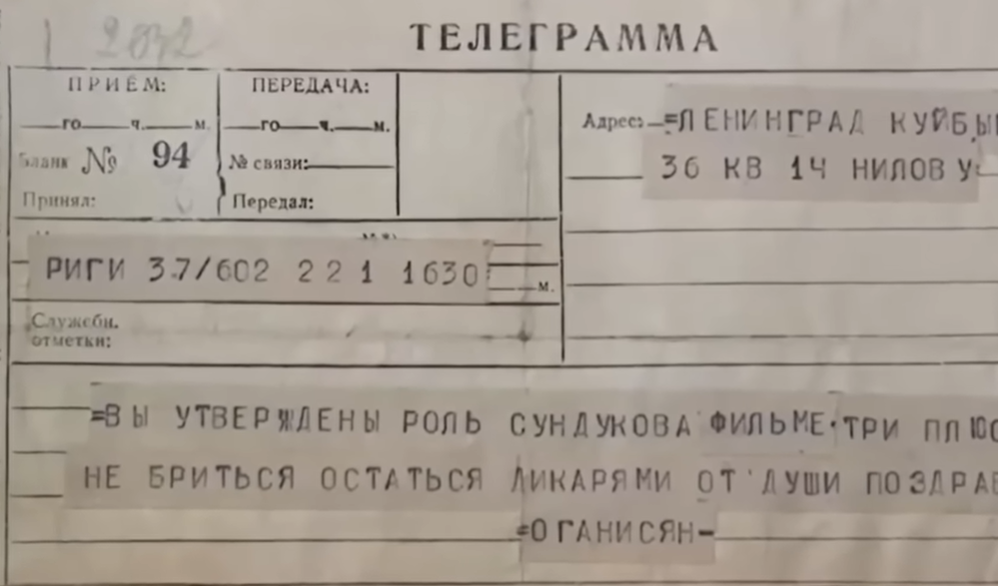 2032
ТЕЛЕГРАММА
ПРИЁМ:
ПЕРЕДАЧА:
го ч. м.
го ч. м.
Бланк № 94
№ связи:
Принял:
Передал:
Адрес: =ЛЕНИНГРАД КУЙБЫ
36 КВ 14 НИЛОВУ=
РИГИ 37/602 22 1 1630
м.
Служебн.
отметки:
=ВЫ УТВЕРЖДЕНЫ РОЛЬ СУНДУКОВА ФИЛЬМЕ ТРИ ПЛЮС
НЕ БРИТЬСЯ ОСТАТЬСЯ ДИКАРЯМИ ОТ ДУШИ ПОЗДРАВ
=ОГАНИСЯН-